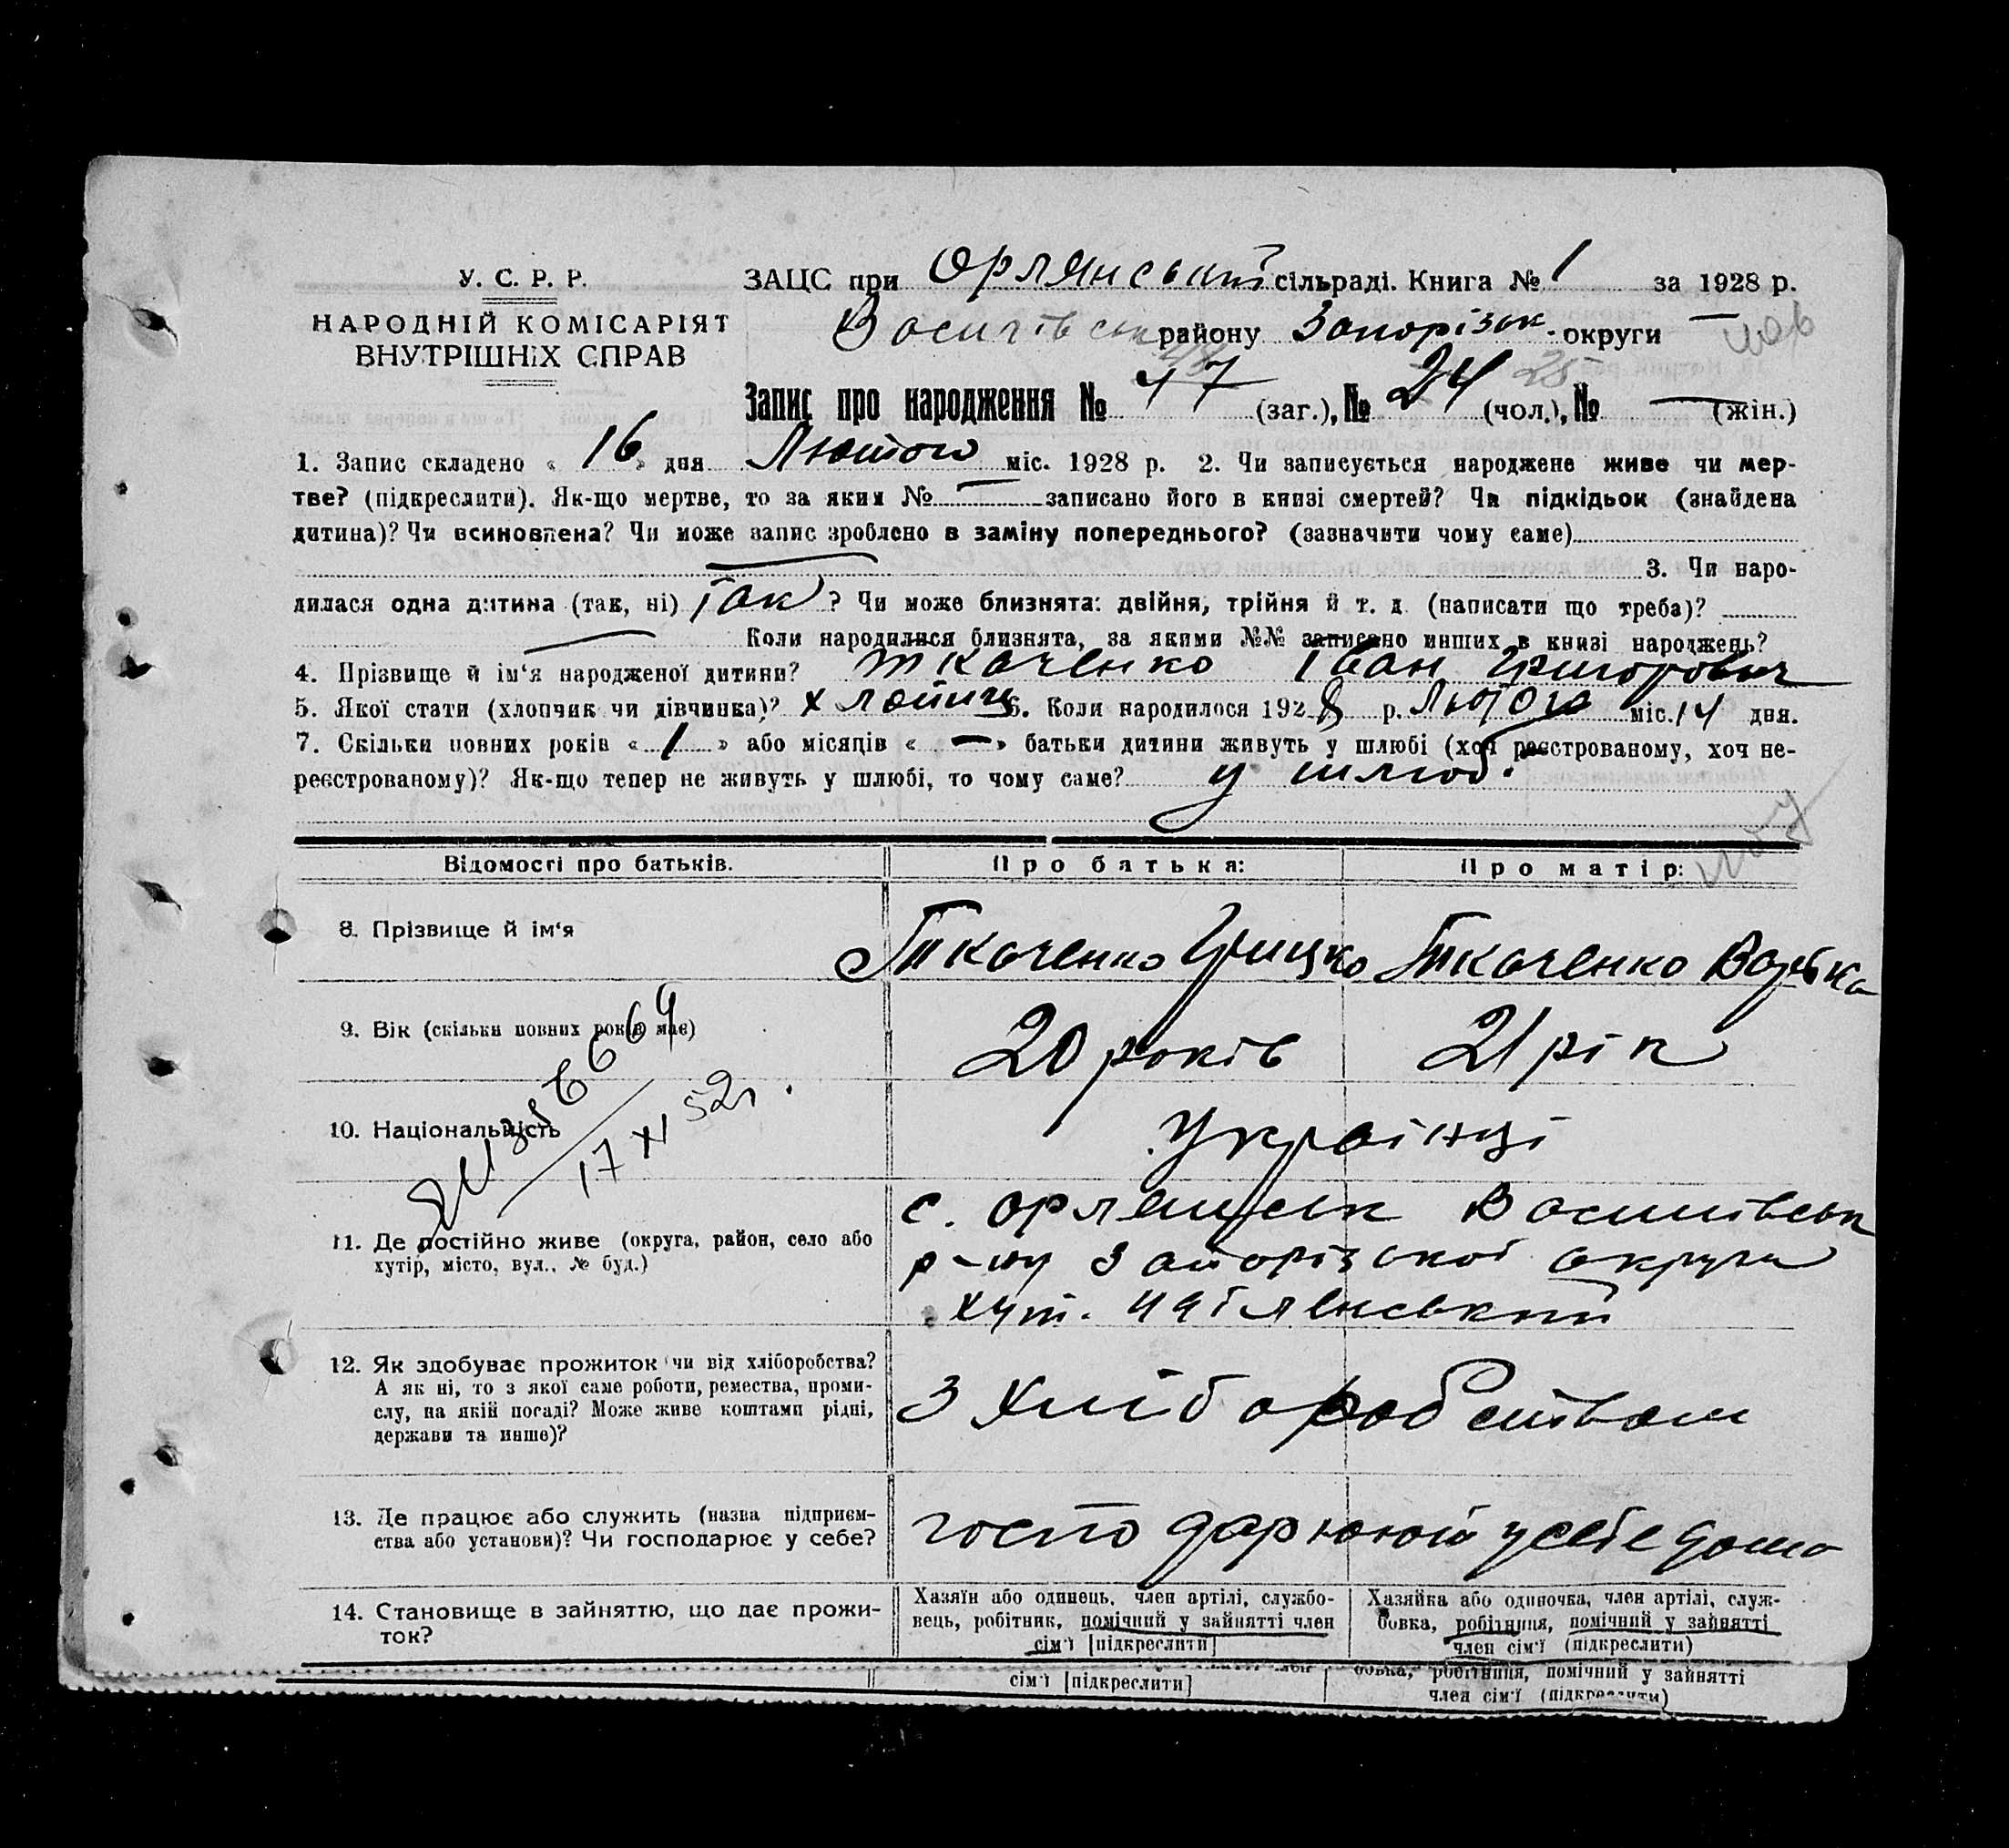 У. С. Р. Р.
НАРОДНІЙ КОМІСАРІЯТ
ВНУТРІШНІХ СПРАВ
ЗАЦС при Орлянський сільраді. Книга № 1 за 1928 р.
Василівськ району Запорізьк. округи —
Запис про народження № 47 (заг.), № 24 25 (чол.), № — (жін.)
1. Запис складено « 16 » дня Лютого міс. 1928 р. 2. Чи записується народжене живе чи мер-
тве? (підкреслити). Як-що мертве, то за яким № — записано його в книзі смертей? Чи підкідьок (знайдена
дитина)? Чи всиновлена? Чи може запис зроблено в заміну попереднього? (зазначити чому саме)
3. Чи наро-
дилася одна дитина (так, ні) Так ? Чи може близнята: двійня, трійня й т. д. (написати що треба)?
— Коли народилися близнята, за якими №№ записано инших в книзі народжень?
4. Прізвище й ім‘я народженої дитини? Ткаченко Іван Григорович
5. Якої стати (хлопчик чи дівчинка)? Хлопчик 6. Коли народилося 1928 р. Лютого міс. 14 дня.
7. Скільки повних років « 1 » або місяців « — » батьки дитини живуть у шлюбі (хоч реєстрованому, хоч не-
реєстрованому)? Як-що тепер не живуть у шлюбі, то чому саме? у шлюбі
Відомості про батьків. Про батька: Про матір:
8. Прізвище й ім‘я Ткаченко Грицко Ткаченко Варька
9. Вік (скільки повних років має) 20 років 21 рік
10. Національність Українці
17 XI 52г.
11. Де постійно живе (округа, район, село або
хутір, місто, вул., № буд.)
с. Орлянськ Василівськ
р-ну Запорізської округи
хут.
12. Як здобуває прожиток чи від хліборобства?
А як ні, то з якої саме роботи, ремества, проми-
слу, на якій посаді? Може живе коштами рідні,
держави та инше)?
З Хліборобством
13. Де працює або служить (назва підприєм-
ства або установи)? Чи господарює у себе?
господарюють у себе дома
14. Становище в зайняттю, що дає прожи-
ток?
Хазяїн або одинець, член артілі, службо-
вець, робітник, помічний у зайнятті член
сім‘ї [підкреслити]
Хазяйка або одиночка, член артілі, служ-
бовка, робітниця, помічний у зайнятті
член сім‘ї (підкреслити)
сім‘ї [підкреслити]
бовка, робітниця, помічний у зайнятті
член сім‘ї (підкреслити)